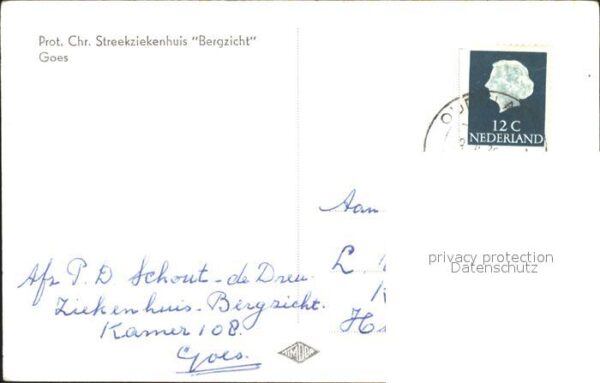 Prot. Chr. Streekziekenhuis "Bergzicht"
Goes
12 C
NEDERLAND
Aan
L.
privacy protection
Datenschutz
Afz P. D Schout-de Dreu
Ziekenhuis-Bergzicht.
Kamer 108.
Goes.